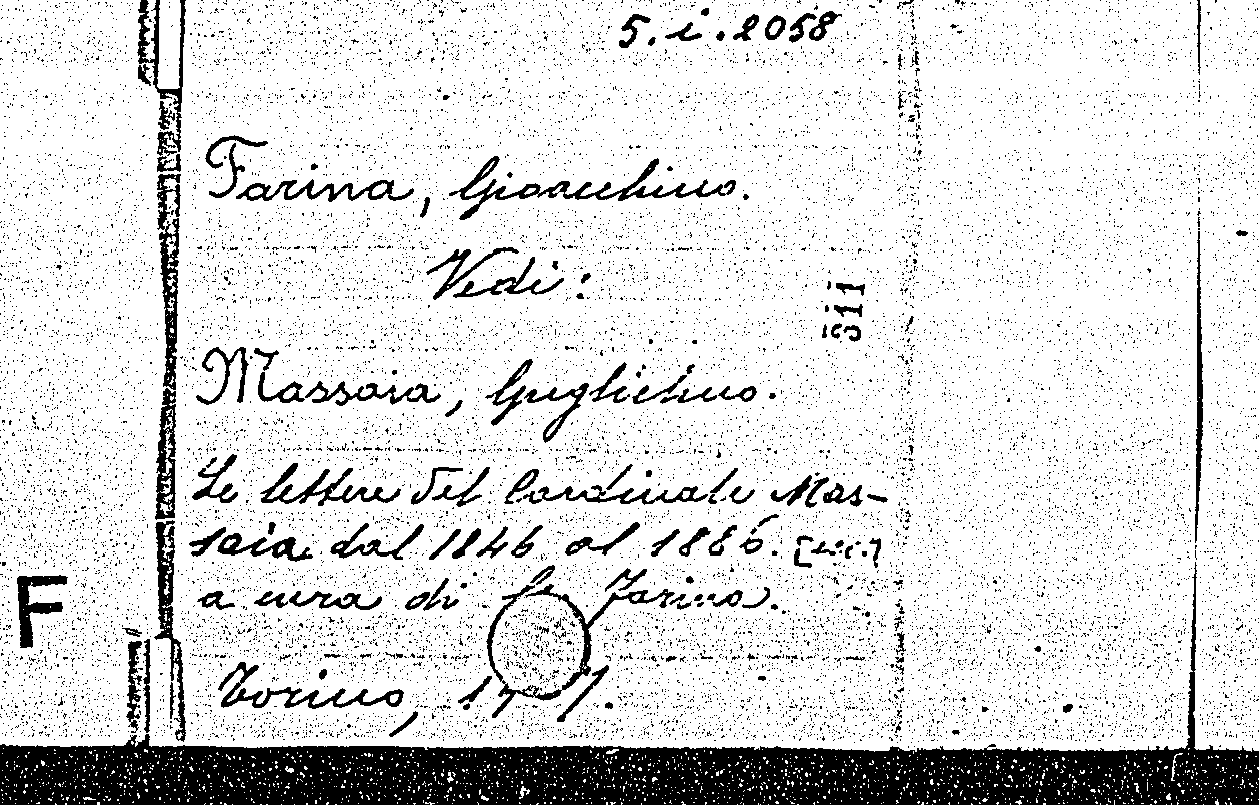 5.i.2058
Farina, Gioacchino.
Vedi:
311
Massaia, Guglielmo.
Le lettere del Cardinale Mas-
saia dal 1846 al 1886. [ecc.]
F
a cura di G. Farina.
Torino,